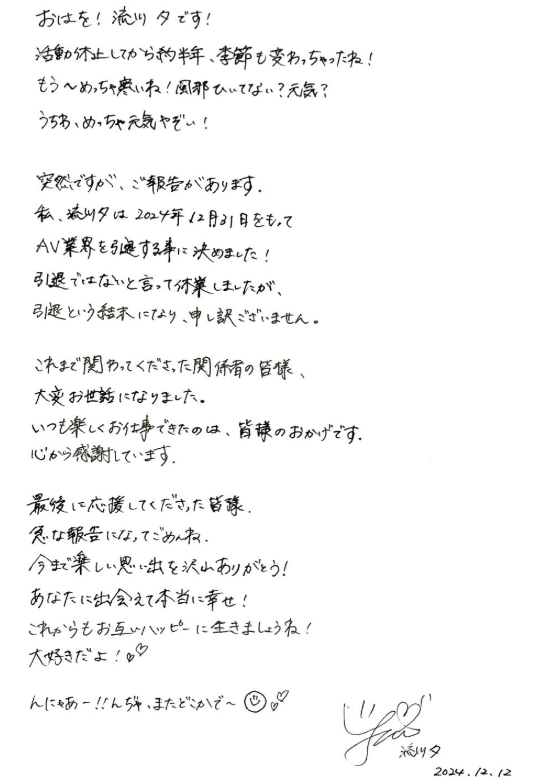 おはを！流川夕です！
活動休止してから約半年、季節も変わっちゃったね！
もう〜めっちゃ寒いね！風邪ひいてない？元気？
うちわ、めっちゃ元気やぞい！
突然ですが、ご報告があります．
私、流川夕は2024年12月31日をもって
AV業界を引退する事に決めました！
引退ではないと言って休業しましたが、
引退という結末になり、申し訳ございません。
これまで関わってくださった関係者の皆様、
大変お世話になりました。
いつも楽しくお仕事できたのは、皆様のおかげです．
心から感謝しています．
最後に応援してくださった皆様．
急な報告になってごめんね．
今まで楽しい思い出を沢山ありがとう！
あなたに出会えて本当に幸せ！
これからもお互いハッピーに生きましょうね！
大好きだよ！
んにゃあー！！んぢゃ、またどこかで〜
流川夕
2024.12.12